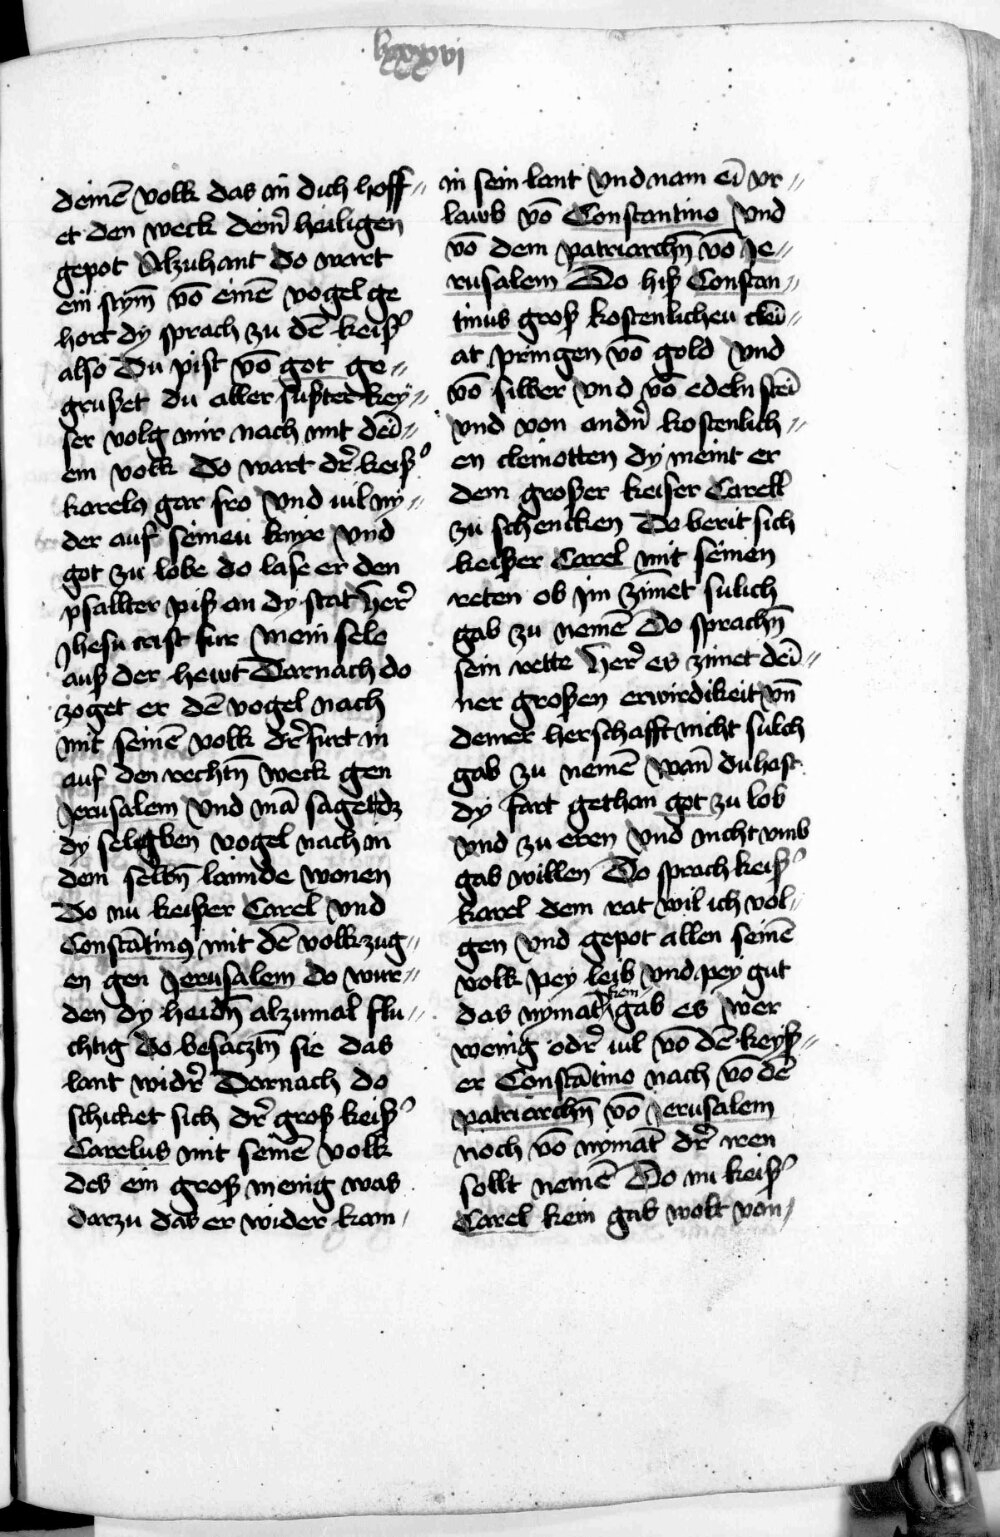 lxxxvi
deinē volk das in dich hoff⸗
et den weck deinr̄ heiligen
gepot Alzuhant do wart
ein stym̄ vō einē vogel ge
hort dy sprach zu dē keiſʒ
also Du pist vō got ge⸗
grußet du aller sußter key⸗
ser volg mir nach mit dei⸗
em volk Do wart dr̄ keiſʒ
karels gar fro vnd vil ny⸗
der auf seineu knye vnd
got zu lobe do lase er den
psallter piß an dy stat her̄
Jhesu crist fur mein sele
auß der hewt Darnach do
zoget er dē vogel nach
mit seinē volk dr̄ furt in
auf den rechtn̄ weck gen
Jerusalem vnd mā saget dz
dy selgben vogel nach in
dem selbn̄ lannde wonen
Do nu keißer Carel vnd
Constātinus mit dē volk zug⸗
en gen Jerusalem do wur⸗
den dy heidn̄ alzumal flu⸗
chtig do besacztn̄ sie das
lant widr̄ Dornach do
schicket sich dr̄ groß keiſʒ
Carelus mit seinē volk
des ein groß menig was
darzu das er wider kam
in sein lant vnd nam eī vr⸗
lawb vō Constantino vnd
vō dem patriarchn̄ vō Je⸗
rusalem Do hiß Constan⸗
tinus groß kostenlicheu clei⸗
at pringen vō gold vnd
vō silber vnd vō edeln stei
vnd von andn̄ kostenlich⸗
en cleinotten dy meint er
dem großer keiser Carell
zu schencken Do berit sich
keißer Carel mit seinen
reten ob im zimet sulich
gab zu nemē Do sprachn̄
sein rette her̄ es zimet dei⸗
ner großen erwirdikeit vn̄
deiner herschafft nicht sulch
gab zu nemē wan̄ du hast
dy fart gethan got zu lob
vnd zu eren vnd nicht vmb
gab willen Do sprach keiſʒ
karel dem rat wil ich vol⸗
gen vnd gepot allen seinē
volk pey leib vnd pey gut
das nymāt kein gab es wer
wenig odr̄ vil vō dē keyß⸗
er Constātino nach vō dē
patriarchn̄ vō Jerusalem
noch vō nymāt dr̄ iren
sollt nemē Do nu keiſʒ
Carel kein gab wolt von